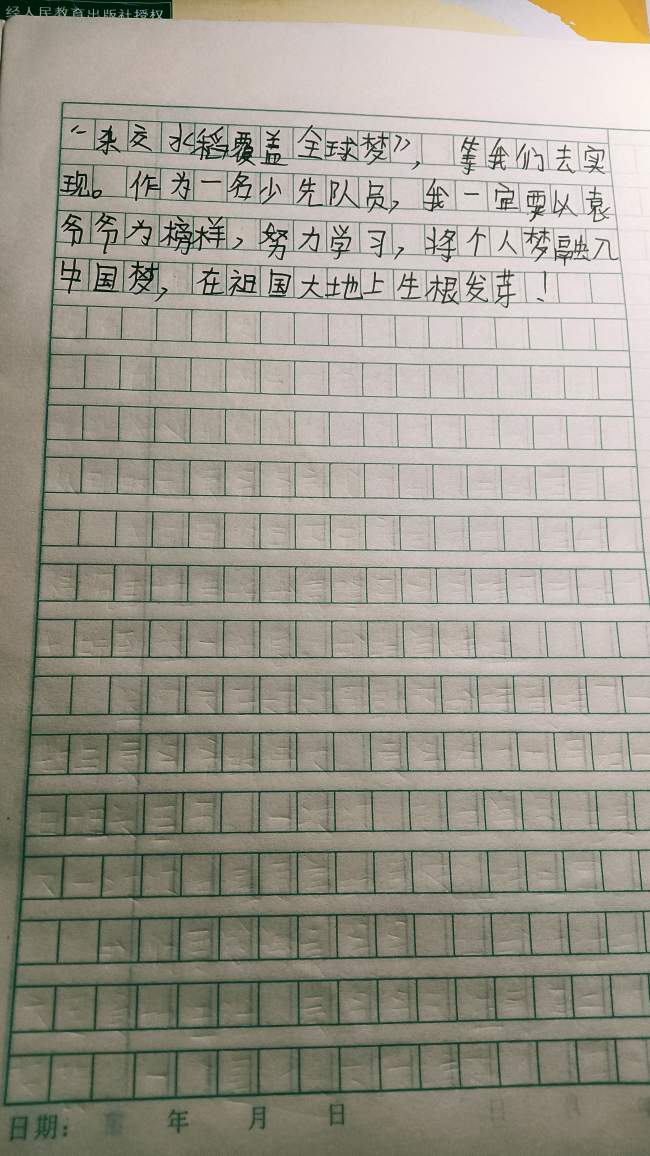 经人民教育出版社授权
“杂交水稻覆盖全球梦”，等我们去实
现。作为一名少先队员，我一定要以袁
爷爷为榜样，努力学习，将个人梦融入
中国梦，在祖国大地上生根发芽！
日期： 年 月 日